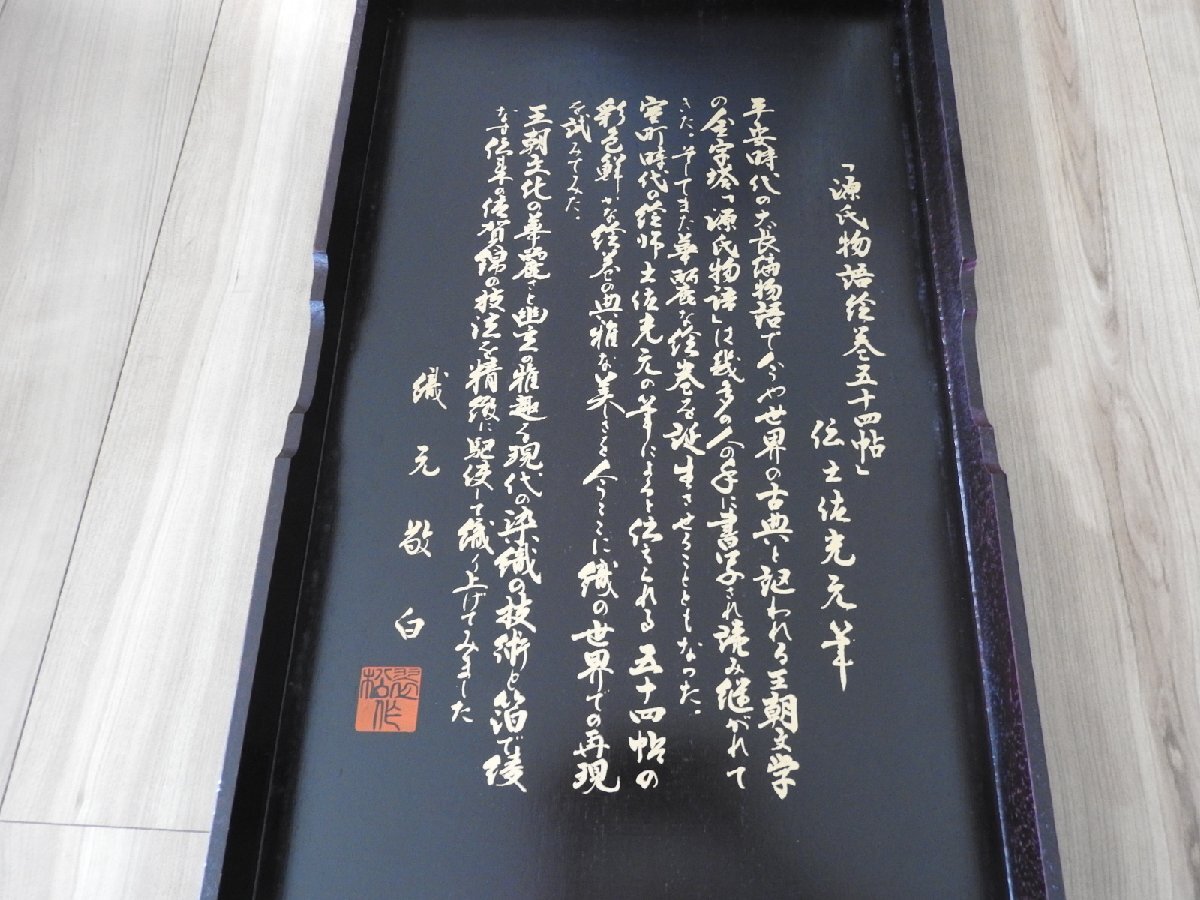 「源氏物語絵巻五十四帖」
伝土佐光元筆
平安時代の大長編物語で今や世界の古典と記われる王朝文学
の金字塔「源氏物語」は幾多の人の手に書写され読み継がれて
きた。そしてまた華麗な絵巻を誕生させることともなった。
室町時代の絵師土佐光元の筆によると伝えられる五十四帖の
彩色鮮かな絵巻の典雅な美しさを今ここに織の世界での再現
を試みてみた。
王朝文化の華麗さと幽玄の雅趣を現代の染織の技術と箔で綾
なす伝承の佐賀錦の技法を精緻に駆使して織り上げてみました
織元敬白